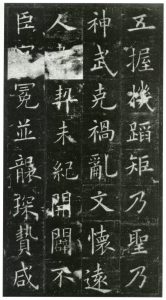 五握機蹈矩乃聖乃
神武克禍亂文懷遠
人契未紀開闢不
臣冕並襲琛贄咸